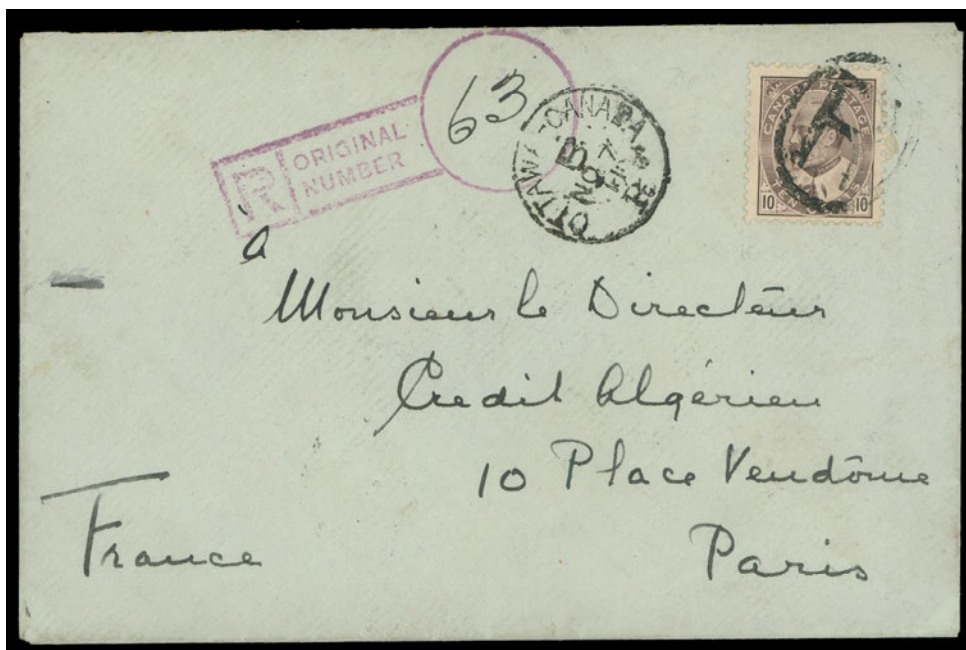 R ORIGINAL
NUMBER
63
OTTAWA CANADA
CANADA POSTAGE
10 TEN 10
à
Monsieur le Directeur
Credit Algérien
10 Place Vendôme
Paris
France